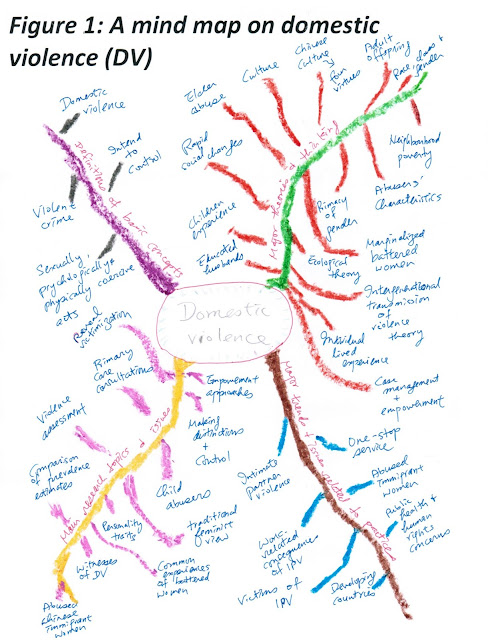 Figure 1: A mind map on domestic
violence (DV)
Domestic
violence
Domestic
violence
Intend
to
control
Violent
crime
Sexually,
psychologically &
physically coercive
acts
Definitions & basic concepts
Elder
abuse
Culture
Chinese
Culture
four
virtues
Adult
offspring
Race, class &
gender
Rapid
social changes
Neighborhood
poverty
Abusers'
characteristics
Children
experience
Primacy
of
gender
Educated
husbands
Ecological
theory
Marginalized
battered
women
Intergenerational
transmission
of
violence
theory
Individual
lived
experience
Case
management +
empowerment
Major theories & thinking
Sexual
victimization
Primary
Care
consultations
Empowerment
approaches
Violence
assessment
Making
distinctions
+
Control
Comparison
of prevalence
estimates
Child
abusers
Personality
traits
traditional
feminist
view
Witnesses
of DV
Common
experiences
of battered
women
Abused
Chinese
Immigrant
women
Main research topics & issues
Major trends & issues related to practices
One-stop
service
Intimate
Partner
violence
Abused
Immigrant
women
Public
health +
human
rights
concerns
Work-
related
consequences
of IPV
Victims of
IPV
Developing
countries